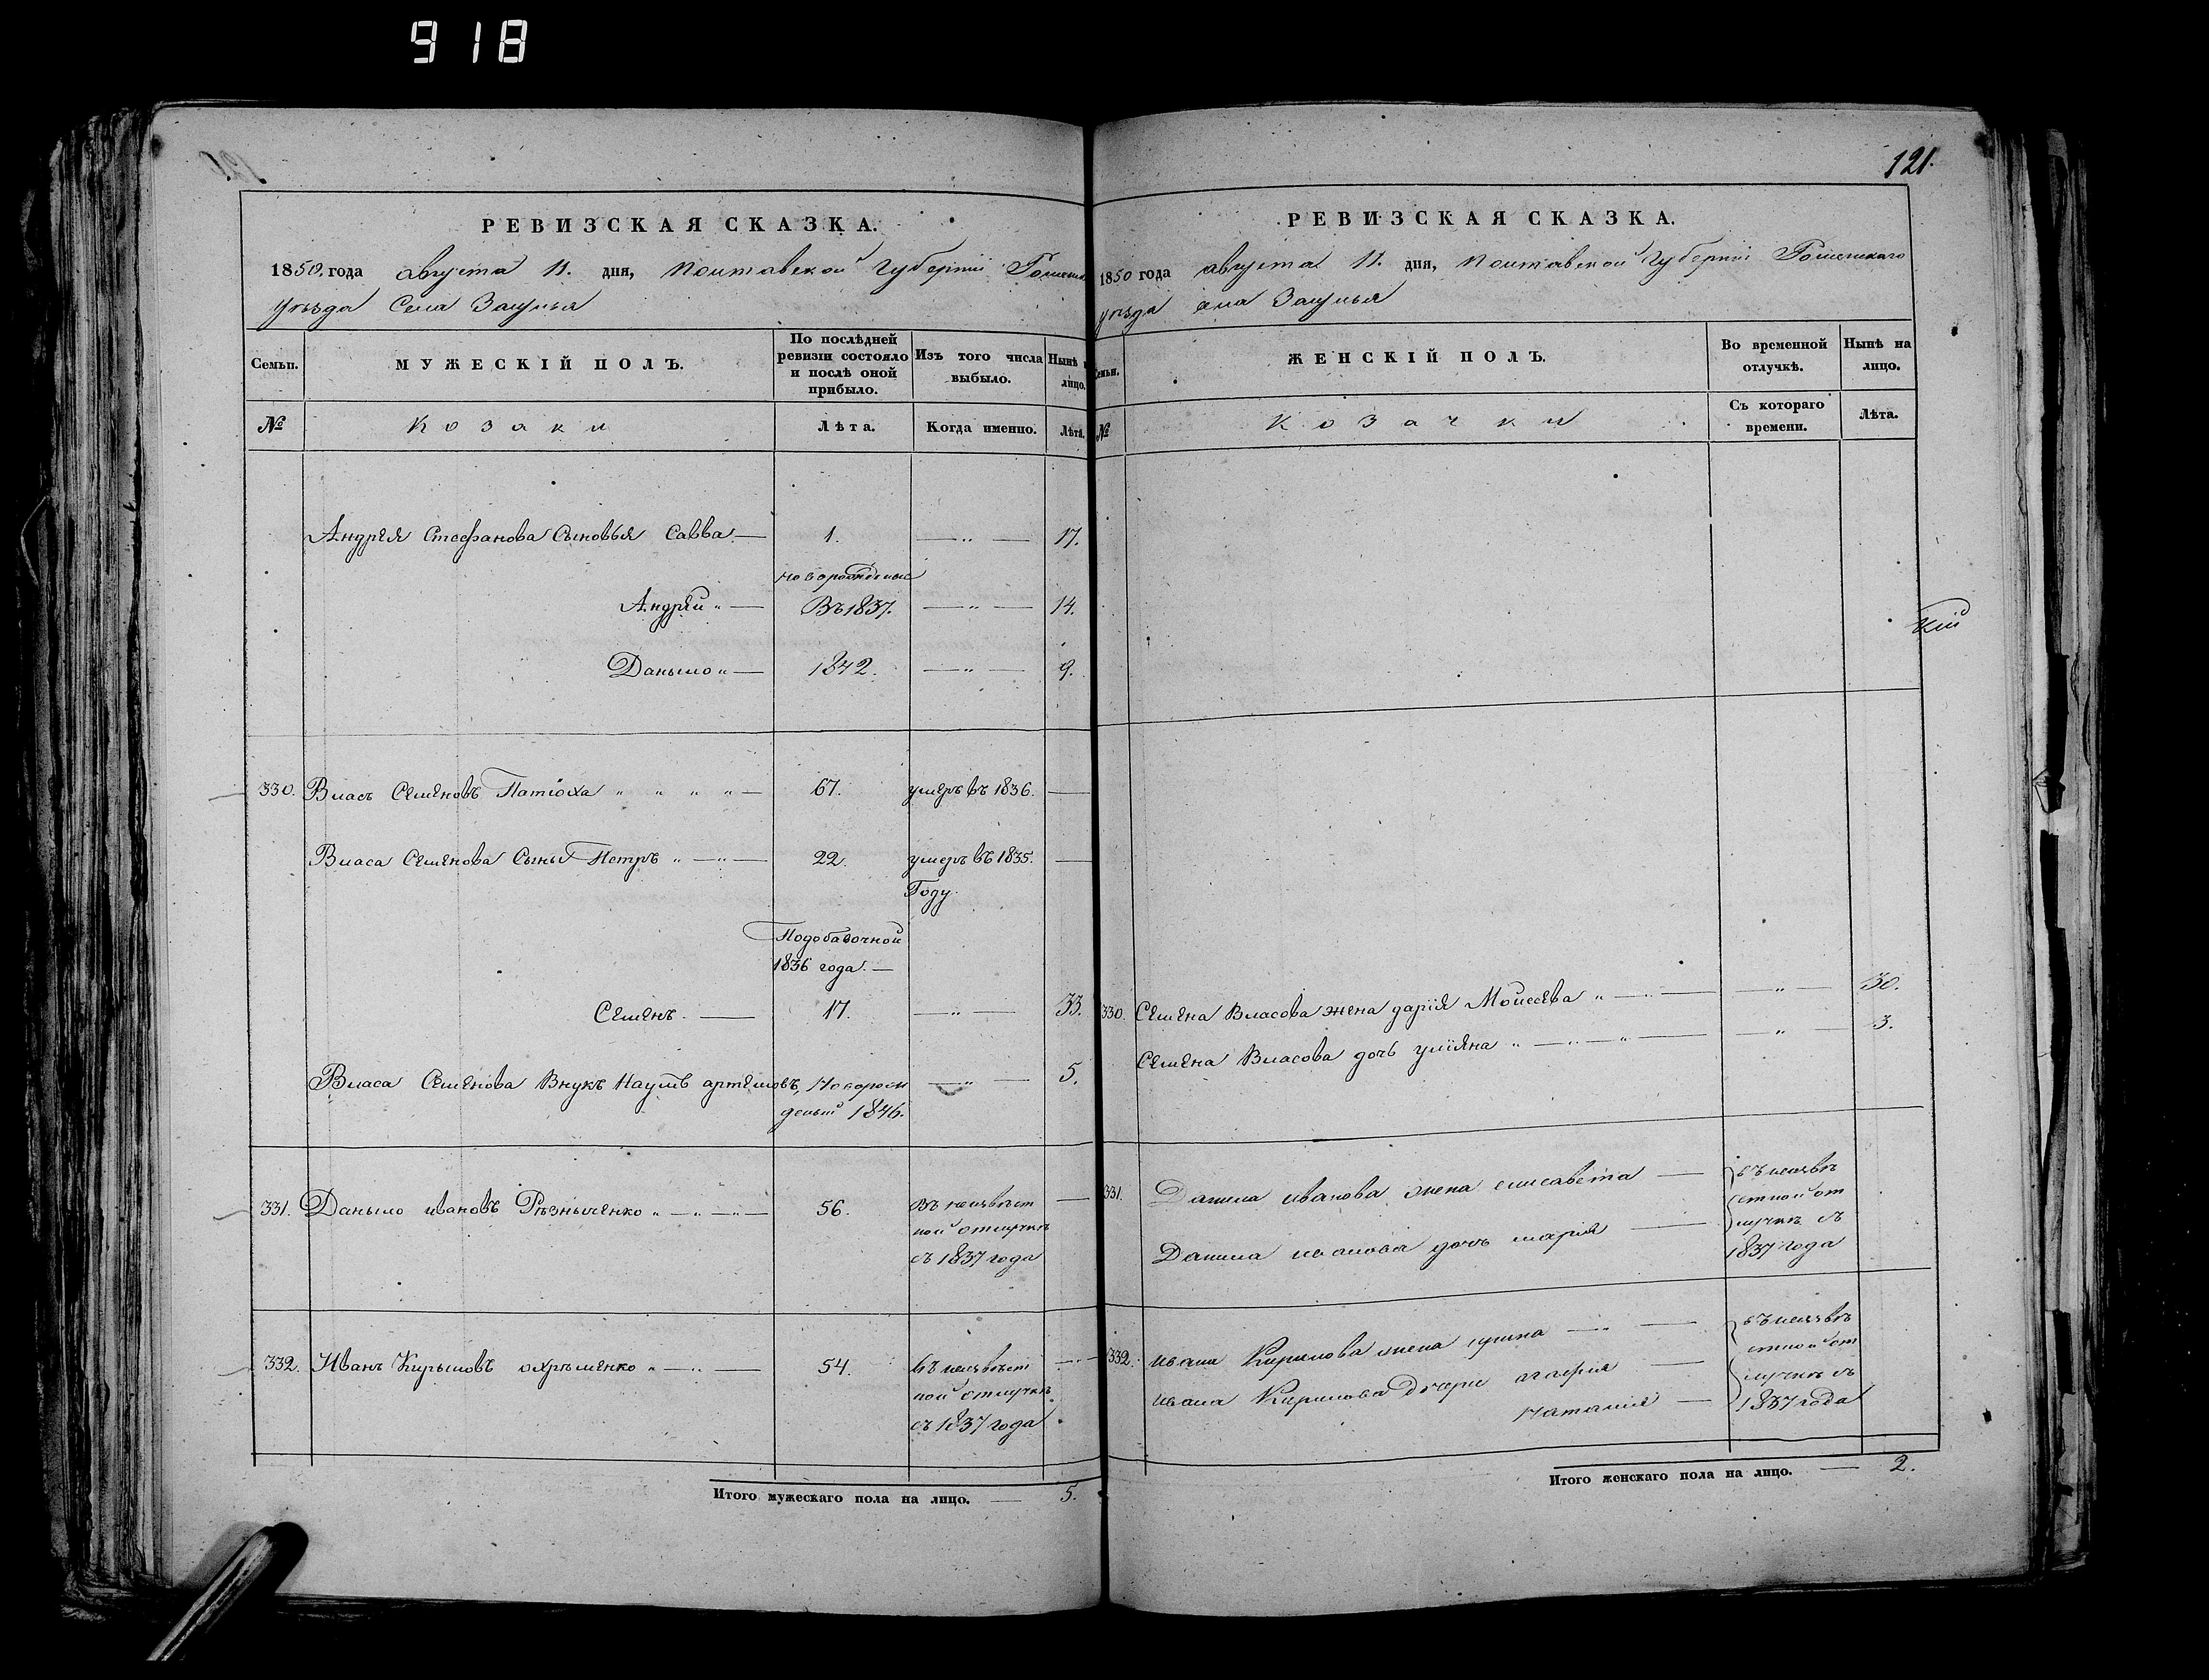 918
РЕВИЗСКАЯ СКАЗКА.
1850. года августа 11. дня, Полтавской Губерніи Роменска
уѣзда Села Засулья
Семьи.
МУЖЕСКІЙ ПОЛЪ.
По послѣдней ревизіи состояло и послѣ оной прибыло.
Изъ того числа выбыло.
Нынѣ на лицо.
№
Козаки
Лѣта.
Когда именно.
Лѣта.
Андрея Стефанова Сыновья Савва — 1. — „ — 17.
новорожденные
Андрей „ — Въ 1837. — „ — 14.
Даныло „ — 1842. — „ — 9.
330. Власъ Семеновъ Патіоха „ „ „ „ — 67. умеръ въ 1836. —
Власа Семенова Сыны Петръ „ — „ — 22. умеръ въ 1835. —
Году.
Подобавочной
1836 года. —
Семенъ. — 17. — „ — 33.
Власа Семенова Внукъ Наумъ артемовъ, Новорож — „ — 5.
деный 1846.
331. Даныло ивановъ Рѣзныченко „ — „ — „ — 56. Въ неизвѣст —
ной отлучкѣ
съ 1837 года
332. Иванъ Кирыловъ охрѣменко „ — „ — 54. въ неизвѣст — „ —
ной отлучкѣ
съ 1837 года
Итого мужескаго пола на лицо. — 5.
121.
РЕВИЗСКАЯ СКАЗКА.
1850 года августа 11. дня, Полтавской Губерніи Роменскаго
уѣзда села Засулья
Семьи.
ЖЕНСКІЙ ПОЛЪ.
Во временной отлучкѣ.
Нынѣ на лицо.
№
Козачки
Съ котораго времени.
Лѣта.
кій
330. Семена Власова жена дарія Моисеева „ — „ — — „ — 30.
Семена Власова дочь уліяна „ — „ — „ — — „ — 3.
331. Данила иванова жена елисавета — въ неизвѣ
стной от
Данила иванова дочь марія — лучкѣ съ
1837 года
332. ивана Кирилова жена ирина — „ — въ неизвѣ
стной от
ивана Кирилова Дочери агафія — лучкѣ съ
Наталія — 1837 года
Итого женскаго пола на лицо. — 2.